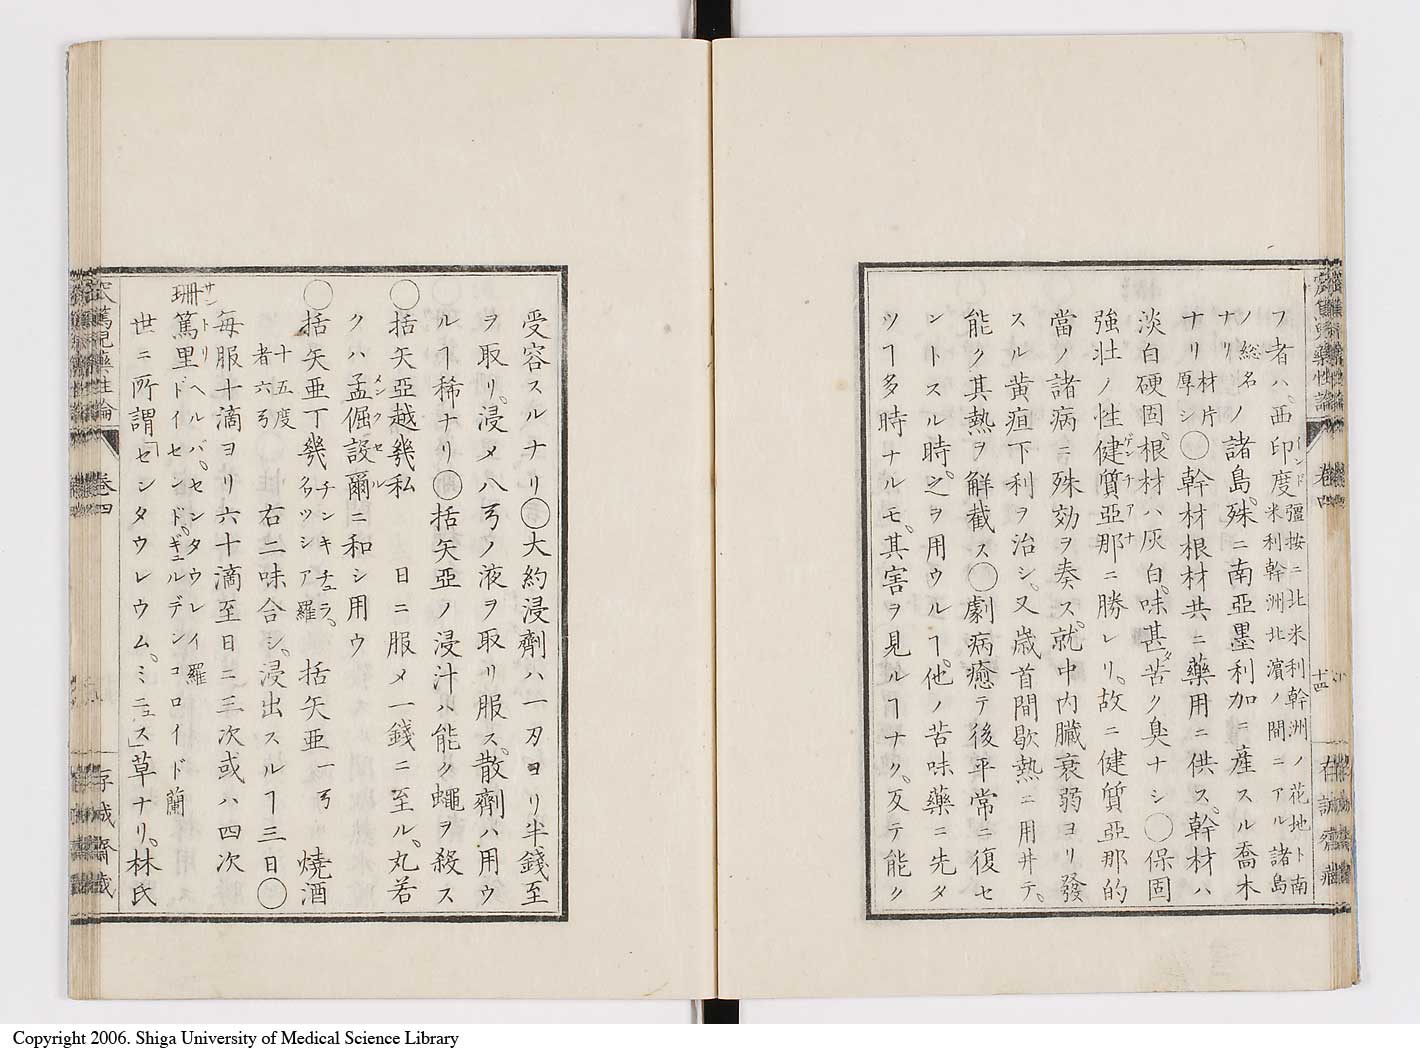 フ者ハ、西印度彊按ニ北米利幹洲ノ花地ト南
米利幹洲北濱ノ間ニアル諸島
ノ総名ノ諸島、殊ニ南亞墨利加ニ産スル喬木
ナリ
ナリ材片厚シ◯幹材根材共ニ藥用ニ供ス、幹材ハ
淡白硬固、根材ハ灰白、味甚苦ク臭ナシ◯保固
強壯ノ性健質亞那ニ勝レリ、故ニ健質亞那的
當ノ諸病ニ殊効ヲ奏ス、就中内臓衰弱ヨリ發
スル黄疸下利ヲ治シ、又歳首間歇熱ニ用井テ、
能ク其熱ヲ解截ス◯劇病癒テ後平常ニ復セ
ントスル時、之ヲ用ウルヿ他ノ苦味藥ニ先タ
ツヿ多時ナルモ、其害ヲ見ルヿナク、反テ能ク
卷四
十四
存誠齋藏
受容スルナリ◯大約浸劑ハ一刃ヨリ半錢至
ヲ取リ、浸メ八弓ノ液ヲ取リ服ス、散劑ハ用ウ
ルヿ稀ナリ◯括矢亞ノ浸汁ハ能ク蠅ヲ殺ス
◯括矢亞越幾私 日ニ服メ一錢ニ至ル、丸若
クハ孟倔設爾ニ和シ用ウ
メンクセル
◯括矢亞丁幾 チンキチュラ、クワツシア羅 括矢亞一弓 燒酒
十五度者六弓◯右二味合シ、浸出スルヿ三日◯
毎服十滴ヨリ六十滴至日ニ三次或ハ四次
珊篤里 ヘルバ、センタウレイ羅
サントリ
ドイセンド、ギュルデンコロイド蘭
世ニ所謂「センタウレウム、ミニュス」草ナリ、林氏
篤兒藥性論
卷四
存誠齋藏
Copyright 2006. Shiga University of Medical Science Library